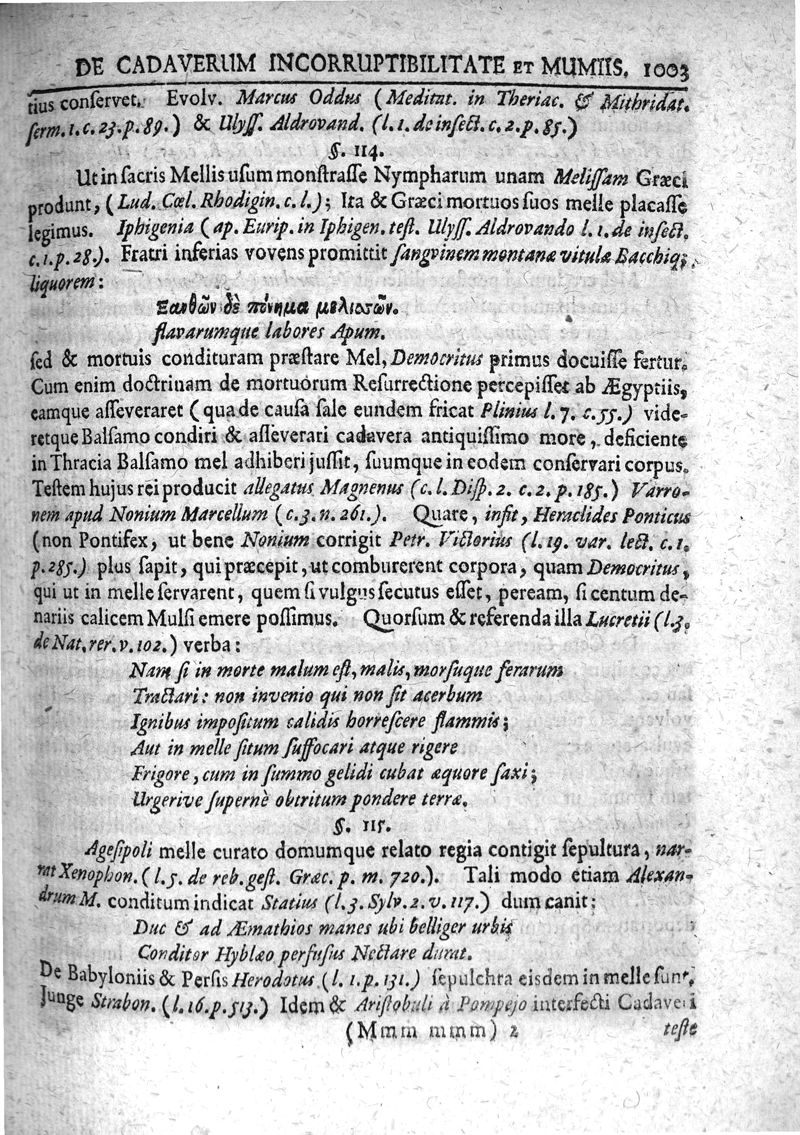 DE CADAVERUM INCORRUPTIBILITATE ET MUMIIS. 1003
tius conſervet. Evolv. Marcus Oddus (Meditat. in Theriac. & Mithridat.
ſerm. 1. c. 23. p. 89.) & Ulyſſ. Aldrovand. (l. 1. de inſect. c. 2. p. 85.)
§. 114.
Ut in ſacris Mellis uſum monſtraſſe Nympharum unam Meliſſam Græci
produnt, (Lud. Cœl. Rhodigin. c. l.); Ita & Græci mortuos ſuos melle placaſſe
legimus. Iphigenia (ap. Eurip. in Iphigen. teſt. Ulyſſ. Aldrovando l. 1. de inſect.
c. 1. p. 28.). Fratri inferias vovens promittit ſangvinem montanæ vitulæ Bacchiq;
liquorem:
Ξανθῶν δὲ πόνημα μελισσῶν.
flavarumque labores Apum.
ſed & mortuis condituram præſtare Mel, Democritus primus docuiſſe fertur.
Cum enim doctrinam de mortuorum Reſurrectione percepiſſet ab Ægyptiis,
eamque aſſeveraret (qua de cauſa ſale eundem fricat Plinius l. 7. c. 55.) vide-
retque Balſamo condiri & aſſeverari cadavera antiquiſſimo more, deficiente
in Thracia Balſamo mel adhiberi juſſit, ſuumque in eodem conſervari corpus.
Teſtem hujus rei producit allegatus Magnenus (c. l. Diſp. 2. c. 2. p. 185.) Varro-
nem apud Nonium Marcellum (c. 3. n. 261.). Quare, infit, Heraclides Ponticus
(non Pontifex, ut bene Nonium corrigit Petr. Victorius (l. 19. var. lect. c. 1.
p. 285.) plus ſapit, qui præcepit, ut comburerent corpora, quam Democritus,
qui ut in melle ſervarent, quem ſi vulgus ſecutus eſſet, peream, ſi centum de-
nariis calicem Mulſi emere poſſimus. Quorſum & referenda illa Lucretii (l. 3.
de Nat. rer. v. 102.) verba:
Nam ſi in morte malum eſt, malis, morſuque ferarum
Tractari: non invenio qui non ſit acerbum
Ignibus impoſitum calidis horreſcere flammis;
Aut in melle ſitum ſuffocari atque rigere
Frigore, cum in ſummo gelidi cubat æquore ſaxi;
Urgerive ſupernè obtritum pondere terræ.
§. 115.
Ageſipoli melle curato domumque relato regia contigit ſepultura, nar-
rat Xenophon. (l. 5. de reb. geſt. Græc. p. m. 720.). Tali modo etiam Alexan-
drum M. conditum indicat Statius (l. 3. Sylv. 2. v. 117.) dum canit:
Duc & ad Æmathios manes ubi belliger urbis
Conditor Hyblæo perfuſus Nectare durat.
De Babyloniis & Perſis Herodotus (l. 1. p. 131.) ſepulchra eisdem in melle ſunt.
Junge Strabon. (l. 16. p. 513.) Idem & Ariſtobuli à Pompejo interfecti Cadaveri
(Mmm mmm) 2 teſte